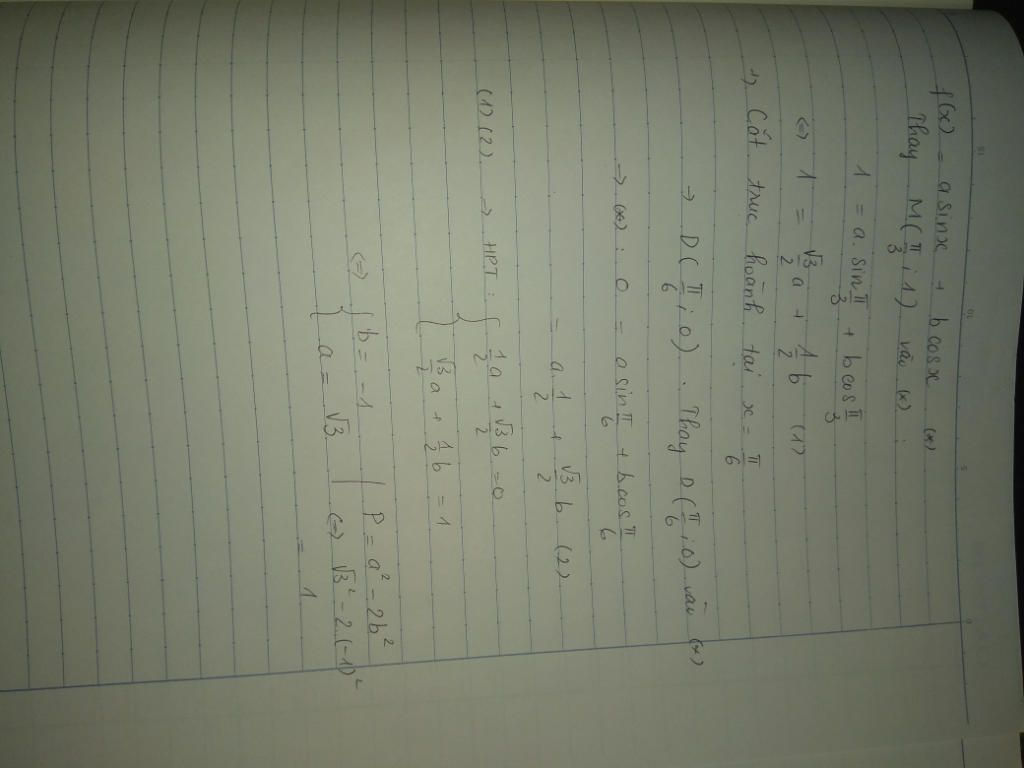 f(x) = a sinx + b cosx (*)
Thay M(π/3 ; 1) vào (*) :
1 = a. sin π/3 + b cos π/3
<=> 1 = √3/2 a + 1/2 b (1)
→ Cắt trục hoành tại x = π/6
→ D(π/6 ; 0). Thay D(π/6 ; 0) vào (*)
→ (*) : 0 = a sin π/6 + b cos π/6
= a 1/2 + √3/2 b (2)
(1) (2) → HPT : { 1/2 a + √3/2 b = 0
{ √3/2 a + 1/2 b = 1
<=> { b = -1 | P = a² - 2b²
{ a = √3 | <=> √3² - 2.(-1)²
= 1